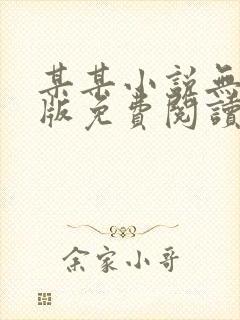 某某小說無
版免費閱讀
余家小哥